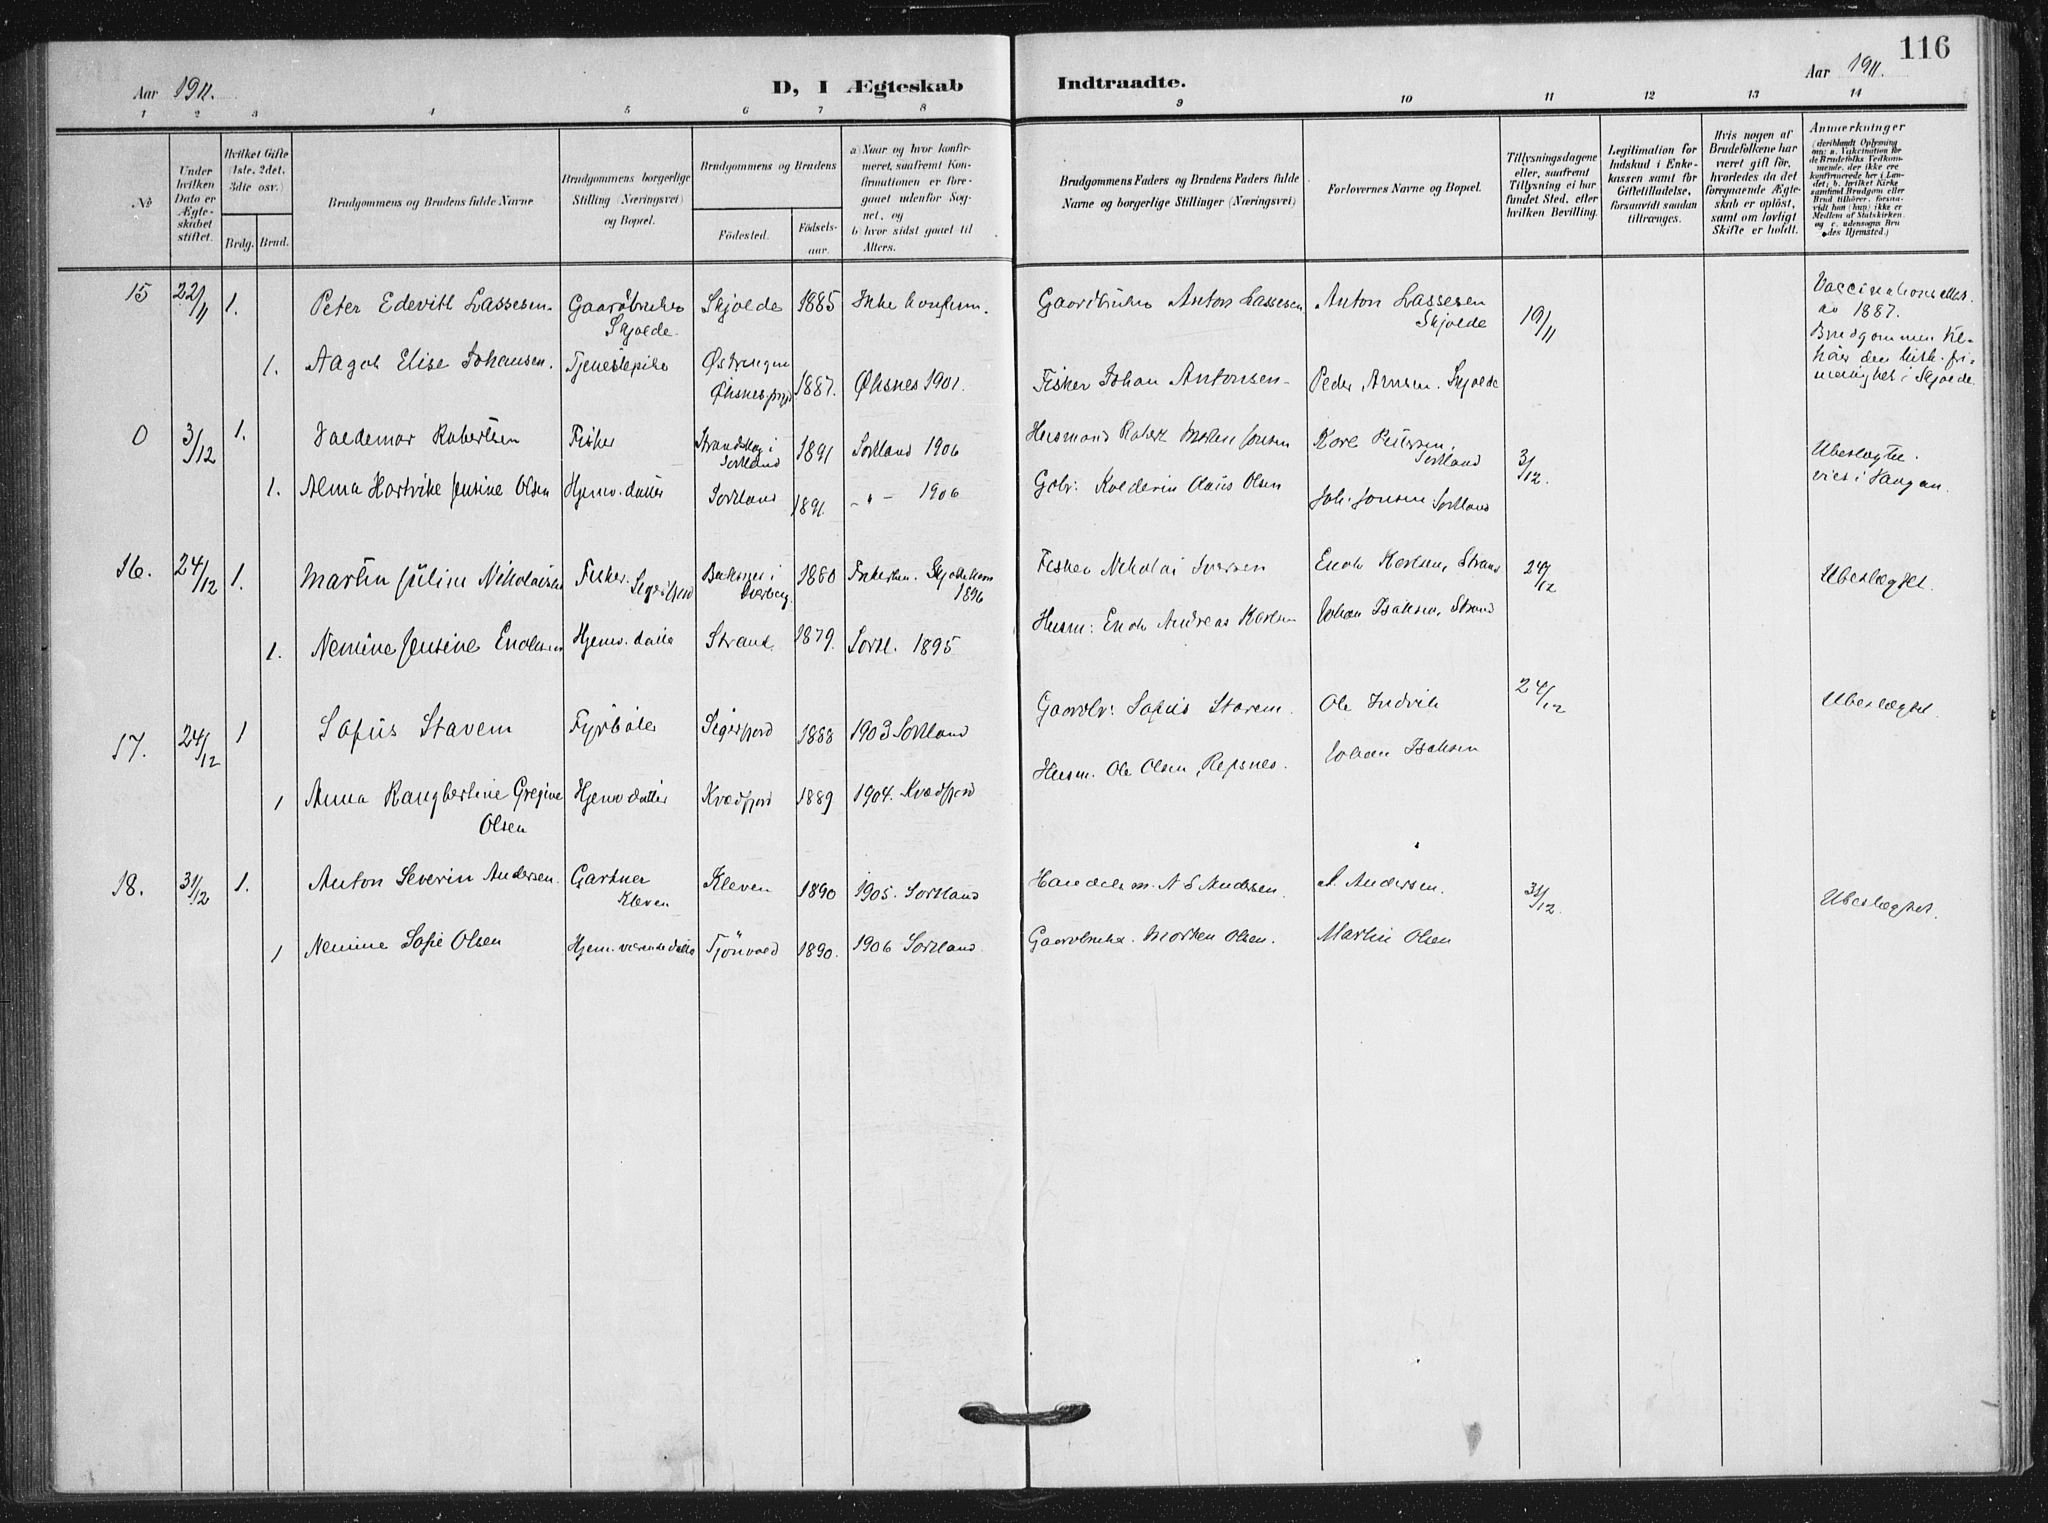 Aar 1911.
D, I Ægteskab
Indtraadte.
Aar 1911.
116
1 2 3 4 5 6 7 8 9 10 11 12 13 14
No
Under hvilken Dato er Ægteskabet stiftet.
Hvilket Gifte (1ste, 2det, 3die osv.)
Brdg. Brud.
Brudgommens og Brudens fulde Navne
Brudgommens borgerlige Stilling (Næringsvei) og Bopæl.
Brudgommens og Brudens
Fødested.
Fødselsaar.
a) Naar og hvor konfirmeret, saafremt Konfirmationen er foregaaet udenfor Sognet, og
b hvor sidst gaaet til Alters.
Brudgommens Faders og Brudens Faders fulde Navne og borgerlige Stillinger (Næringsvei)
Forlovernes Navne og Bopæl.
Tillysningsdagene eller, saafremt Tillysning ei har fundet Sted, efter hvilken Bevilling.
Legitimation for Indskud i Enkekassen samt for Giftetilladelse, forsaavidt saadan tiltrænges.
Hvis nogen af Brudefolkene har været gift før, hvorledes da det foregaaende Ægteskab er opløst, samt om lovligt Skifte er holdt.
Anmerkninger
(deriblandt Oplysning om: a. Vaccination for de Brudefolks Vedkommende, der ikke ere konfirmerede her i Landet; b. hvilket Kirkesamfund Brudgom eller Brud tilhører, forsaavidt han (hun) ikke er Medlem af Statskirken, og c. udensogns Brudes Hjemsted.)
15 22/11 1. Peter Edevitl Lassesen Gaardbruker Skjolde. Skjolde 1885 Ikke konferm. Gaardbruker Anton Lassesen Anton Lassesen Skjolde 19/11 Vaccinationsattest av 1887. Brudgommen
1. Aagot Elise Johansen. Tjenestepike Øksnes 1887. Øksnes 1901. Fisker Johan Antonsen Peder Arnsen. Skjolde
0 3/12 1. Valdemar Robertsen Fisker Sortland 1891 Sortland 1906 Husmand Robert Jensen Karl Sortland 3/12. Ubeslægtet.
1. Alma Hartvike Jensine Olsen Hjemv. datter Sortland 1891. - " - 1906 Gbr: Olaus Olsen Joh. Jensen Sortland
16. 24/12 1. Martin Julin Nikolaisen Fisker. Sigerfjord 1880 1896 Fisker Nikolai Iversen Enok Karlsen, Strand 24/12 Ubeslægtet.
1. Nemine Jensine Enoksen Hjemv. datter Strand 1879. Sortl. 1895 Husm: Enok Andreas Karlsen Johan Isaksen, Strand
17. 24/12 1 Sofus Stavem Fyrbøter Sigerfjord 1888 1903 Sortland Gaardbr: Sofus Stavem Ole Indvik 24/12 Ubeslægtet.
1 Anna Rangbertine Gregine Olsen Hjemv datter Kvædfjord 1889 1904. Kvædfjord Husm. Ole Olsen, Repsnes. Johan Isaksen
18. 31/12 1. Anton Severin Andersen. Gartner Kleven Kleven 1890 1905. Sortland Handelsm. N S Andersen. A. Andersen. 31/12. Ubeslægtet.
1 Nemine Sofie Olsen Hjem. værende datter Tjönvold 1890. 1906 Sortland Gaardbruker. Morten Olsen. Martin Olsen